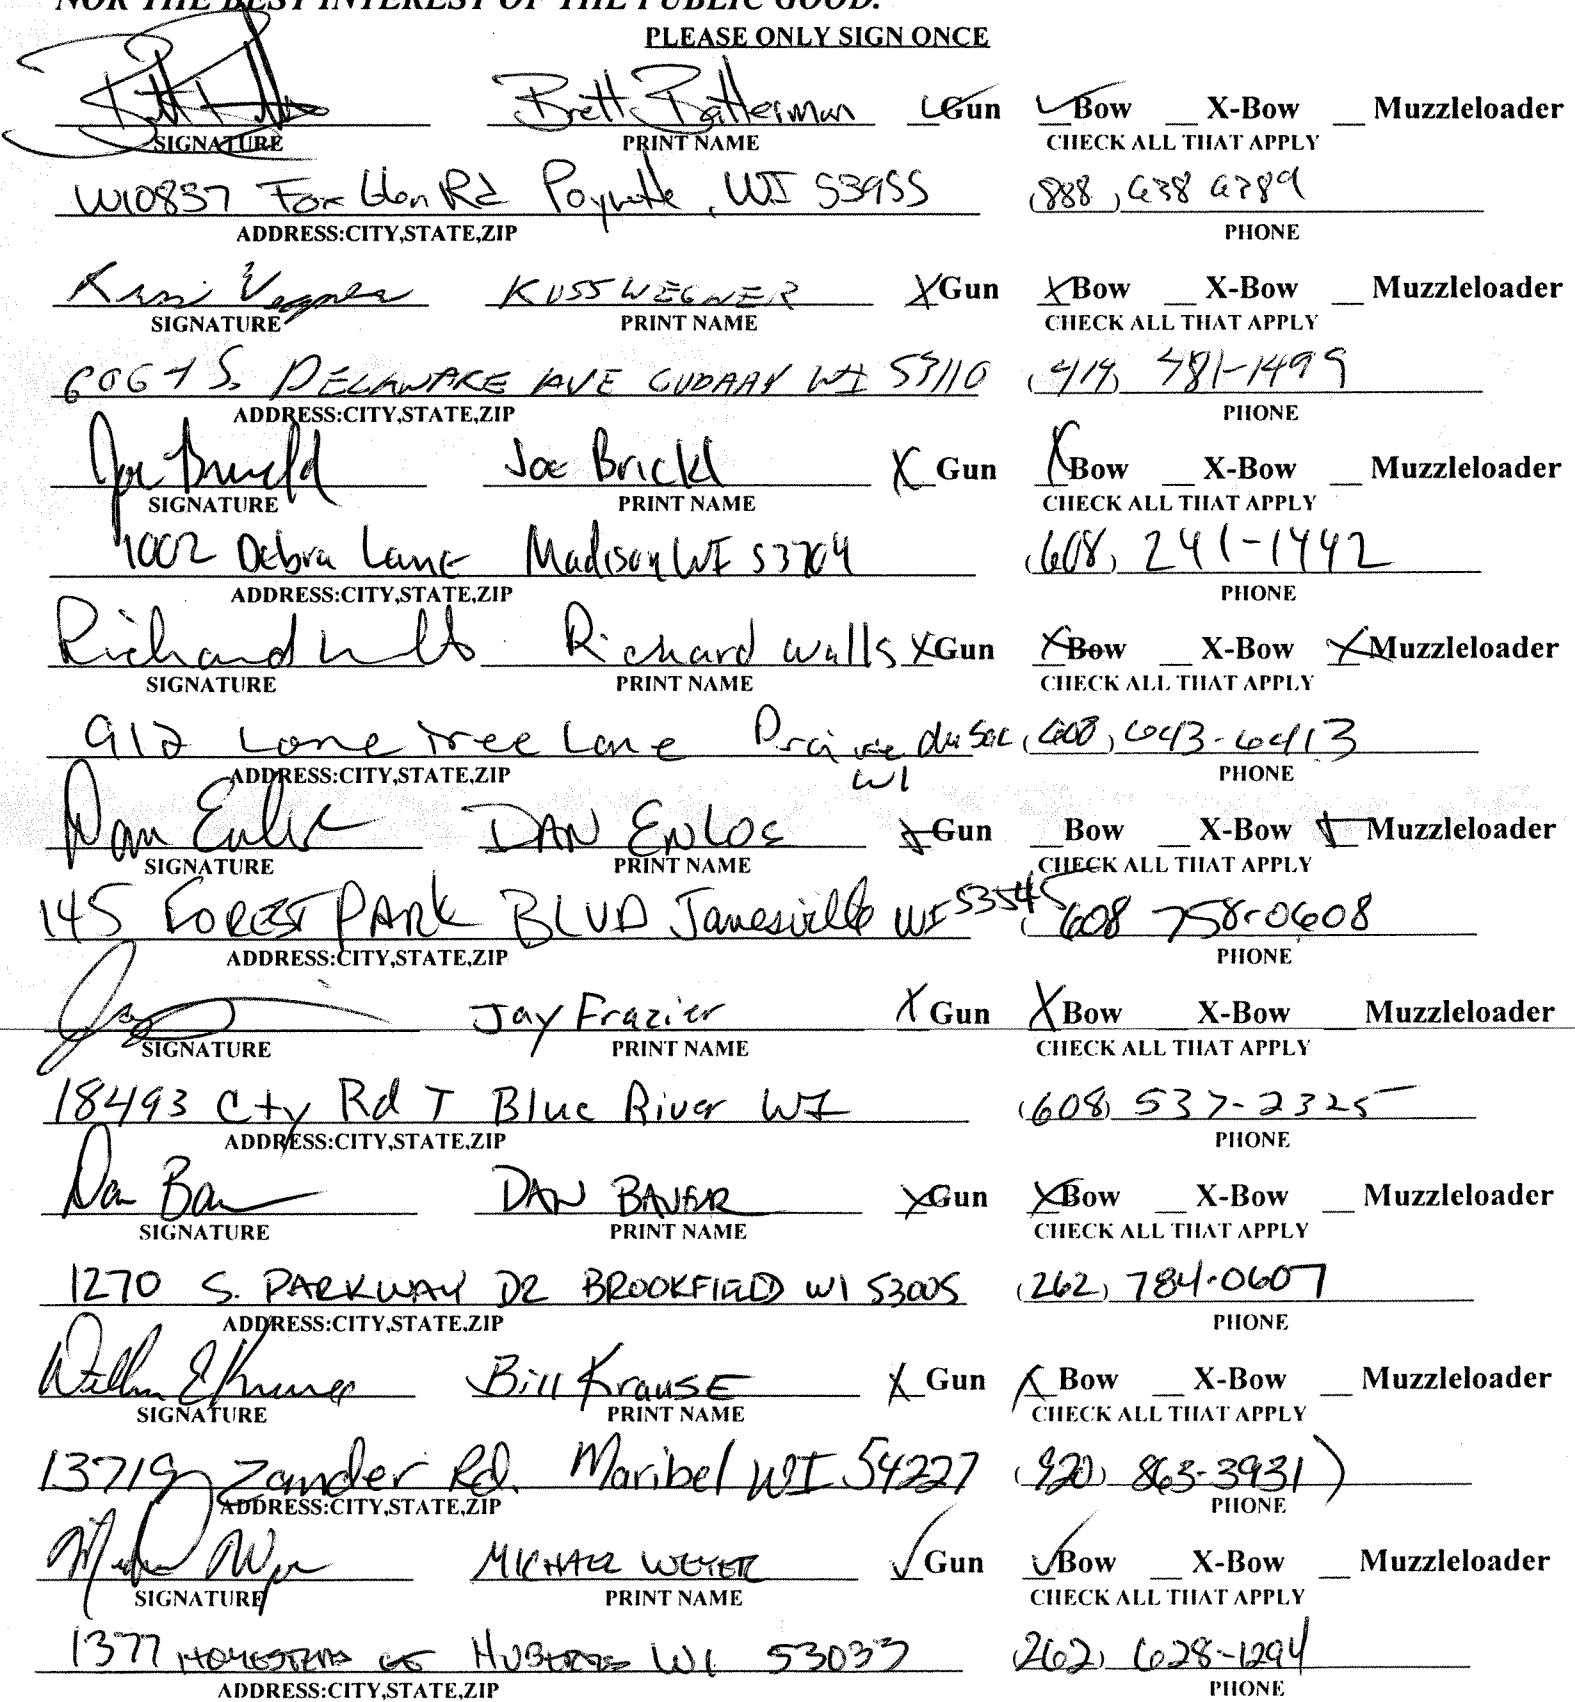 NOR THE BEST INTEREST OF THE PUBLIC GOOD.
PLEASE ONLY SIGN ONCE
Brett Batterman Gun Bow __ X-Bow __ Muzzleloader
SIGNATURE PRINT NAME CHECK ALL THAT APPLY
W10837 Fox Rd Poynette, WI 53955 (888)
ADDRESS:CITY,STATE,ZIP PHONE
WEGNER X Gun X Bow __ X-Bow __ Muzzleloader
SIGNATURE PRINT NAME CHECK ALL THAT APPLY
S. DELAWARE AVE CUDAHY WI 53110 (414) 481-1499
ADDRESS:CITY,STATE,ZIP PHONE
Joe Brickl X Gun X Bow __ X-Bow __ Muzzleloader
SIGNATURE PRINT NAME CHECK ALL THAT APPLY
1002 Debra Lane Madison WI 53704 (608) 241-1442
ADDRESS:CITY,STATE,ZIP PHONE
Richard Richard Walls X Gun X Bow __ X-Bow X Muzzleloader
SIGNATURE PRINT NAME CHECK ALL THAT APPLY
912 Lone Tree Lane Prairie du Sac (608) 643-6413
WI
ADDRESS:CITY,STATE,ZIP PHONE
Dan DAN ENLOE X Gun __ Bow __ X-Bow X Muzzleloader
SIGNATURE PRINT NAME CHECK ALL THAT APPLY
145 FOREST PARK BLVD Janesville WI 53545 (608 758-0608
ADDRESS:CITY,STATE,ZIP PHONE
Jay Frazier X Gun X Bow __ X-Bow __ Muzzleloader
SIGNATURE PRINT NAME CHECK ALL THAT APPLY
18493 Cty Rd T Blue River WI (608) 537-2325
ADDRESS:CITY,STATE,ZIP PHONE
Dan DAN BAUER X Gun X Bow __ X-Bow __ Muzzleloader
SIGNATURE PRINT NAME CHECK ALL THAT APPLY
1270 S. PARKWAY DR BROOKFIELD WI 53005 (262) 784-0607
ADDRESS:CITY,STATE,ZIP PHONE
Bill Krause X Gun X Bow __ X-Bow __ Muzzleloader
SIGNATURE PRINT NAME CHECK ALL THAT APPLY
13719 Zander Rd. Maribel WI 54227 (920) 863-3931)
ADDRESS:CITY,STATE,ZIP PHONE
MICHAEL WEYER ✓ Gun ✓ Bow __ X-Bow __ Muzzleloader
SIGNATURE PRINT NAME CHECK ALL THAT APPLY
1377 WI 53033 (262) 628-1294
ADDRESS:CITY,STATE,ZIP PHONE